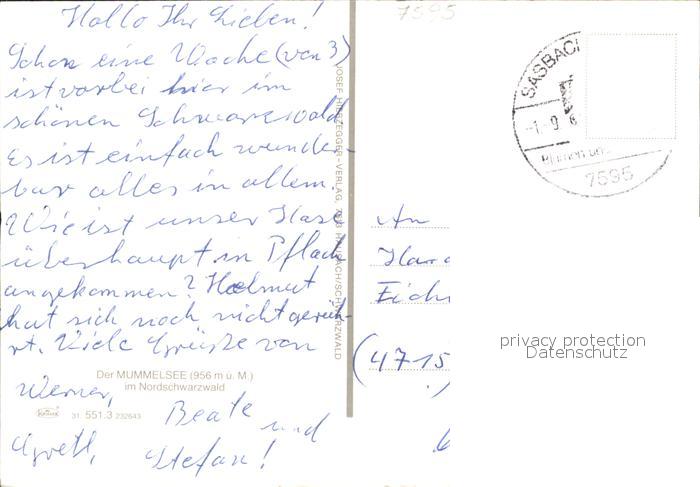 Hallo Ihr Lieben!
Schon eine Woche (von 3)
ist vorbei hier im
schönen Schwarzwald
Es ist einfach wunder-
bar alles in allem.
Wie ist unser Hase
überhaupt in Pflach
angekommen? Helmut
hat sich noch nicht gerüh-
rt. Viele Grüße von
Werner,
Beate
und
Gretl,
Stefan!
Der MUMMELSEE (956 m ü. M.)
im Nordschwarzwald
31. 551.3 232643
JOSEF HERZEGGER-VERLAG, HASLACH/SCHWARZWALD
7595
SASBACH
-1.-9.
Blumen
7595
An
(4715
privacy protection
Datenschutz